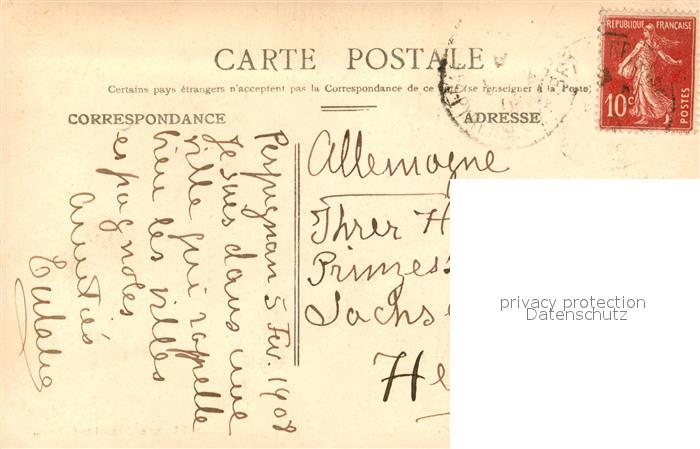 CARTE POSTALE
Certains pays étrangers n'acceptent pas la Correspondance de ce côté (se renseigner à la Poste)
CORRESPONDANCE
ADRESSE
REPUBLIQUE FRANÇAISE
10c
POSTES
Perpignan 5 Fev. 1908
Je suis dans une
ville qui rappelle
bien les villes
espagnoles
Amitiés
Eulalie
Allemagne
Ihrer H
Prinzess
Sachse
He
privacy protection
Datenschutz